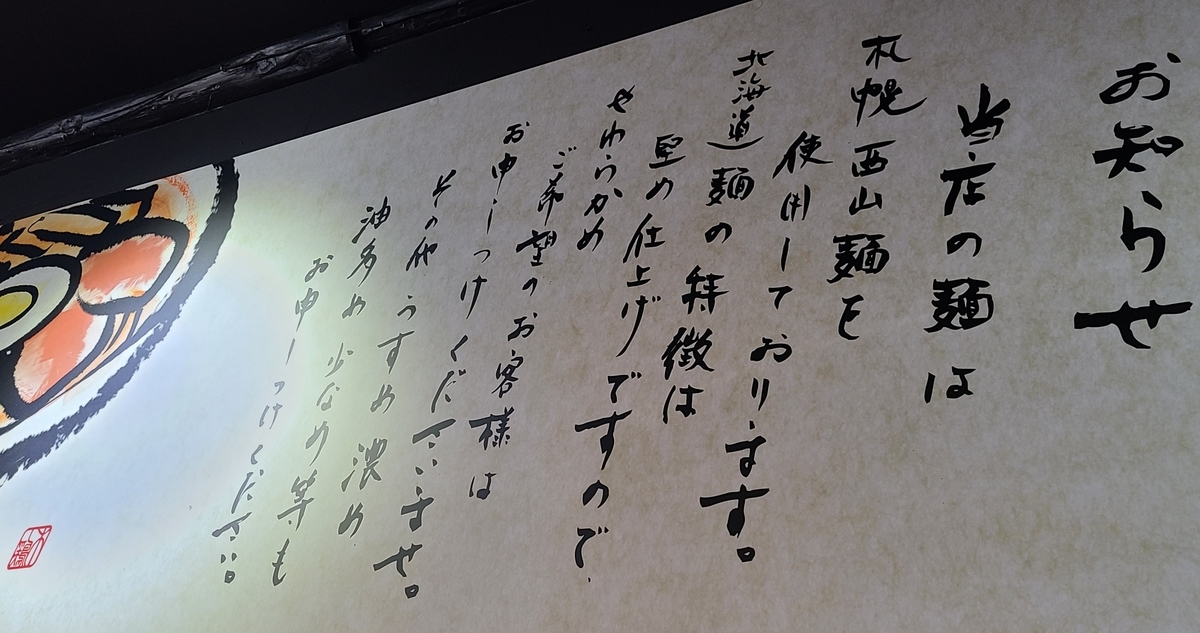 お知らせ
当店の麺は
札幌西山麺を
使用しております。
北海道麺の特徴は
堅め仕上げですので、
やわらかめ
ご希望のお客様は
お申しつけくださいませ。
その他 うすめ 濃め
油多め 少なめ等も
お申しつけください。